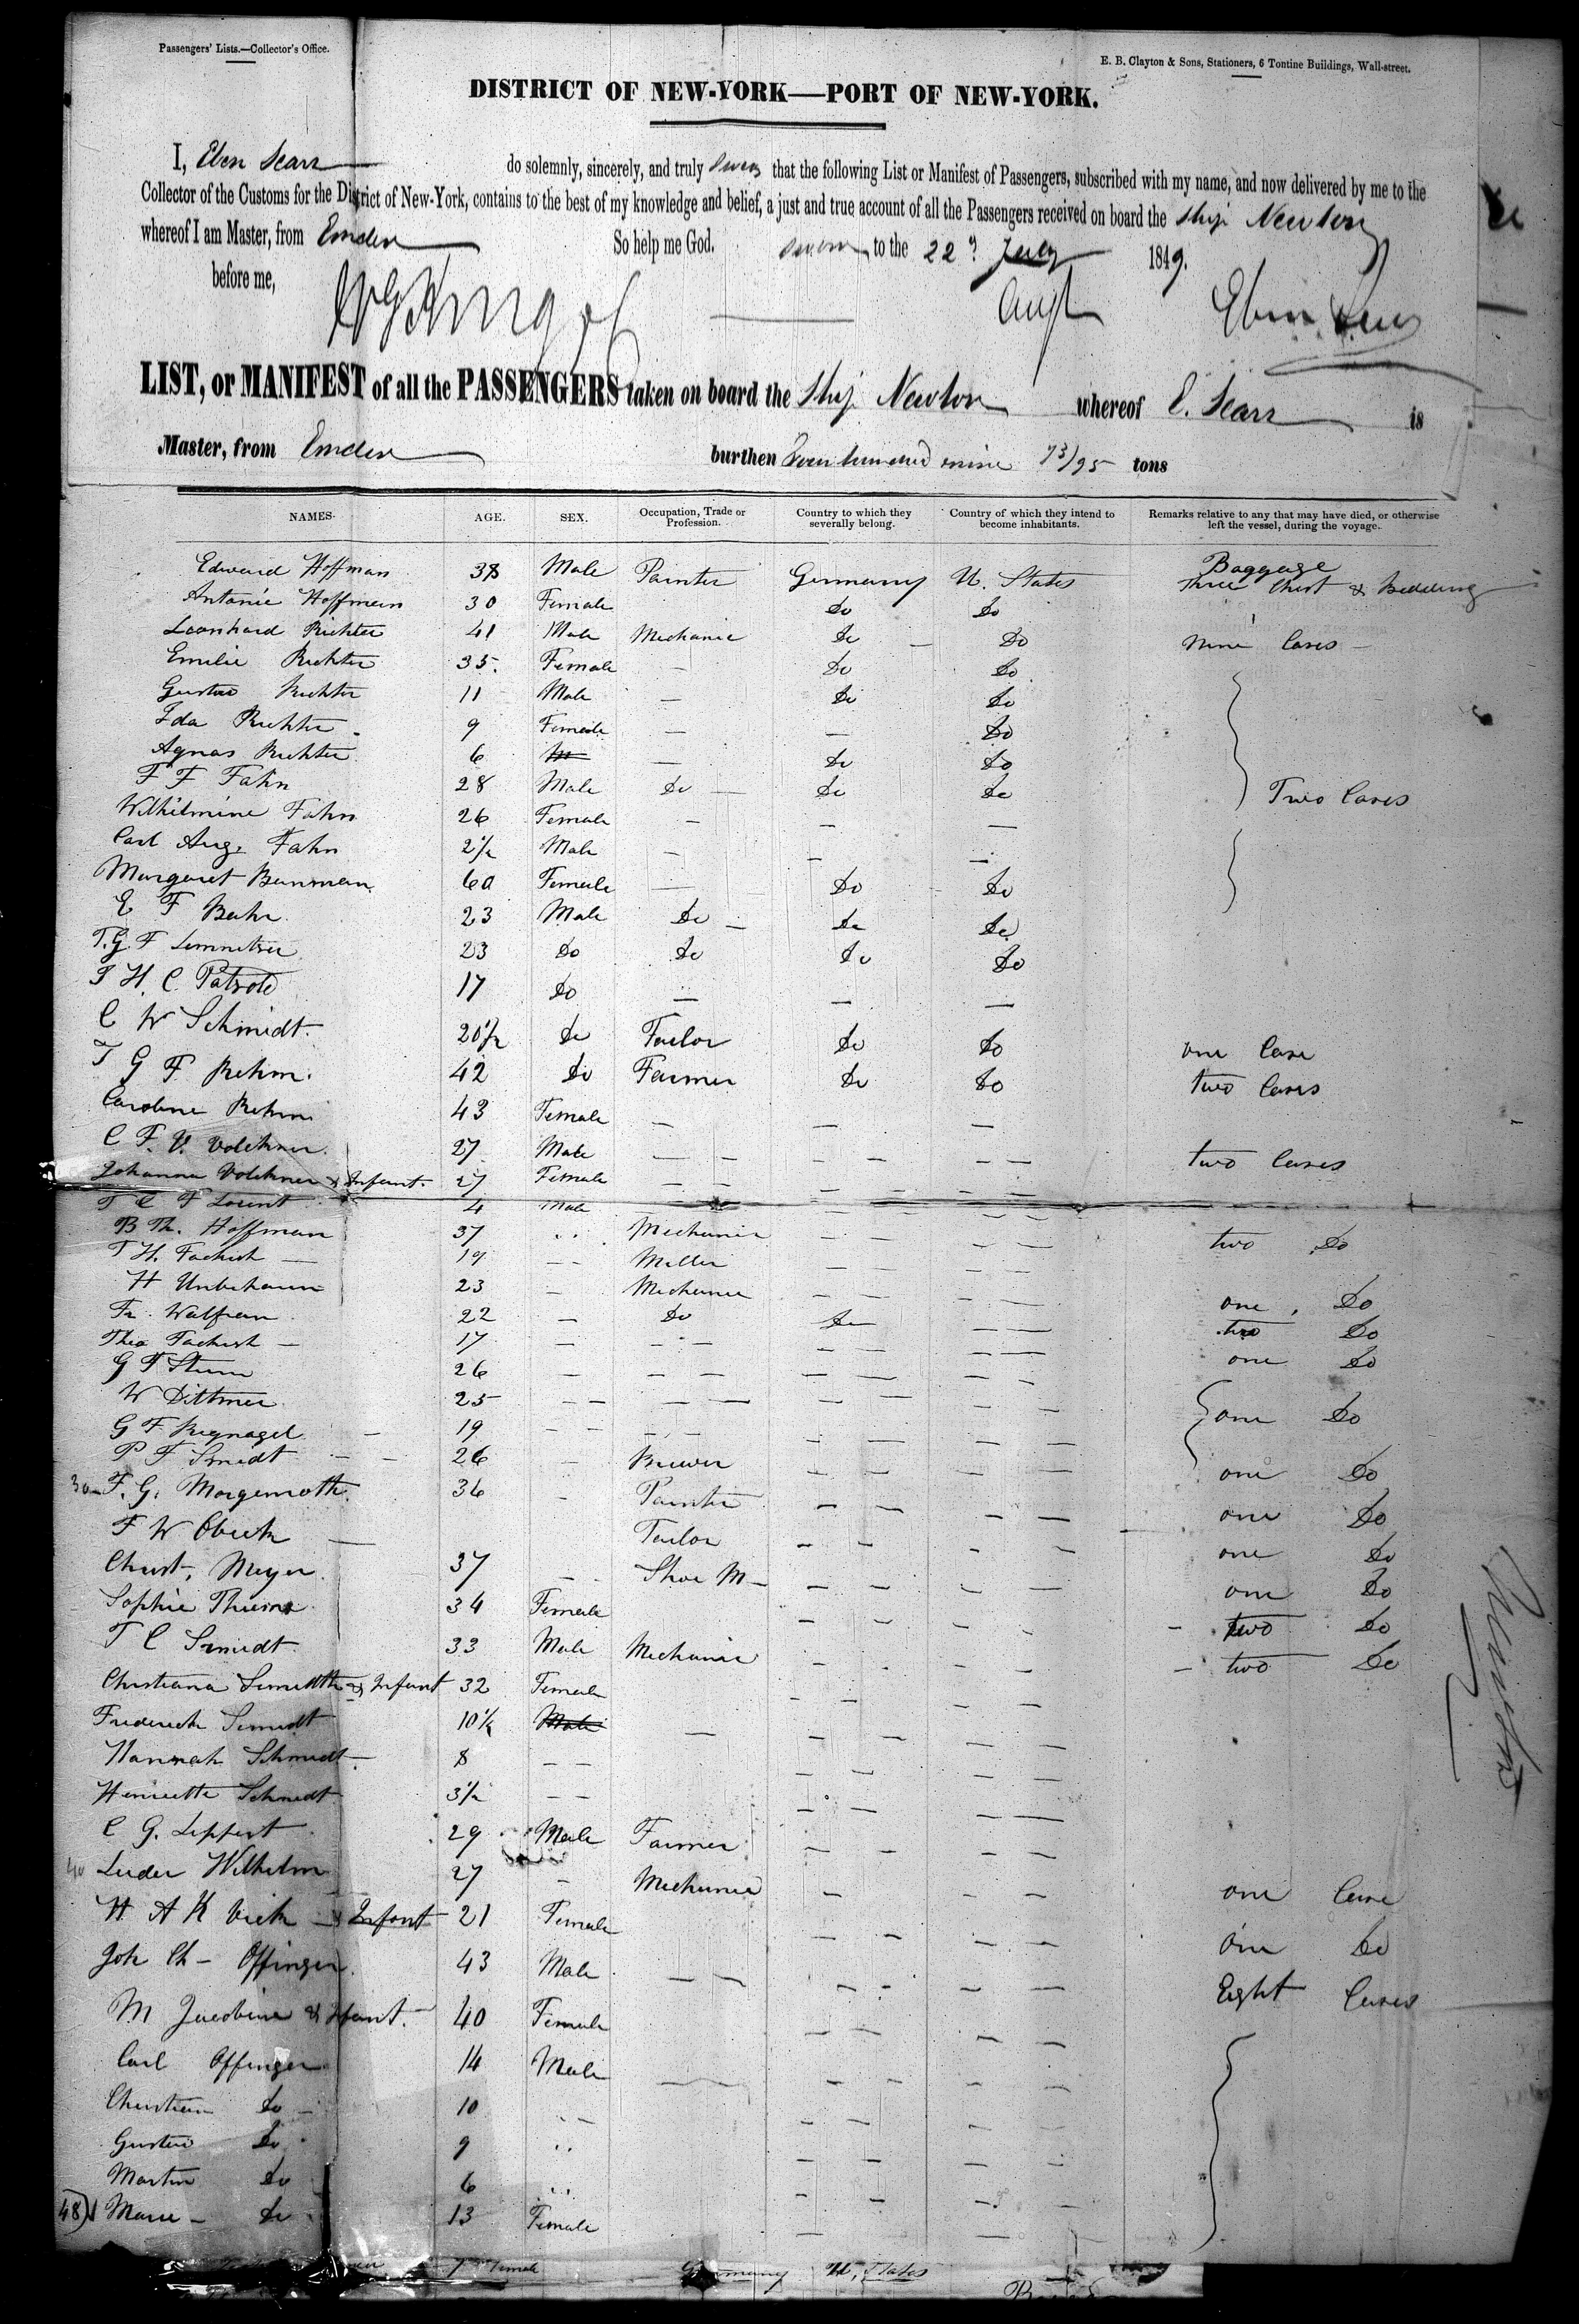 Passengers' Lists.—Collector's Office.
E. B. Clayton & Sons, Stationers, 6 Tontine Buildings, Wall-street.
DISTRICT OF NEW-YORK—PORT OF NEW-YORK.
I, Eben Sears do solemnly, sincerely, and truly swear that the following List or Manifest of Passengers, subscribed with my name, and now delivered by me to the
Collector of the Customs for the District of New-York, contains to the best of my knowledge and belief, a just and true account of all the Passengers received on board the Ship Newton
whereof I am Master, from Emden So help me God. sworn to the 22d July 1849.
before me, Augt Eben Sears
LIST, or MANIFEST of all the PASSENGERS taken on board the Ship Newton whereof E. Sears is
Master, from Emden burthen hundred nine 73/95 tons
NAMES. AGE. SEX. Occupation, Trade or Profession. Country to which they severally belong. Country of which they intend to become inhabitants. Remarks relative to any that may have died, or otherwise left the vessel, during the voyage.
Baggage
Edward Hoffman 38 Male Painter Germany U. States Three Chest & Bedding
Antonie Hoffman 30 Female Do Do
Leonhard Richter 41 Male Mechanic Do — Do nine Cases —
Emilie Richter 35. Female — Do Do
Gustav Richter 11 Male — Do Do
Ida Richter 9 Female — — Do
Agnas Richter 6 M — Do Do
F F Fahn 28 Male Do — Do Do Two Cases
Wilhilmine Fahn 26 Female — — —
Carl Aug. Fahn 2½ Male — — —
Margaret Bausman 60 Female — Do Do
E F Bahr 23 Male Do — Do Do
T. G. F 23 Do Do Do Do
H. C. 17 Do — — —
C W Schmidt. 20½ Do Tailor Do Do one Case
T G F Rehm. 42 Do Farmer Do Do two Cases
Caroline Rehm 43 Female — — —
C F. V. Volckner. 27 Male — — — — — — two Cases
Johanna Volckner & Infant. 27 Female — — — — — —
T C F 4 Male — — — —
B Th. Hoffman 37 " Mechanic — — — — two Do
T H. — 19 — — Miller — — — —
H Unbehaun 23 — Mechanic — — — — one Do
Fr. Walfram 22 — Do Do — — two Do
Theo — 17 — — — — — — — one Do
G F Sturm 26 — — — — — — —
W Dittmer 25 — — — — — — — one Do
G F — 19 — — — — — — — —
P F Smidt — — 26 — Brewer — — — — one Do
30 — F. G. Morgenroth. 36 — Painter — — — — one Do
F W — Tailor — — — — one Do
Christ. Meyer 37 — Shoe M — — — — — one Do
Sophie 34 Female — — — — — two Do
T C Smidt 33 Male Mechanic — — — — — two Do
Christiana & Infant 32 Female — — — —
Frederick Smidt 10½ Male — — — — —
Hannah Schmidt — 8 — — — — — —
Henriette Schmidt 3½ — — — — — —
C G. Leppert 29 Male Farmer — — — —
40 Luder Wilhelm 27 — Mechanic — — — one Case
H. A K — & Infant 21 Female — — — — one Do
Joh Ch — Offinger 43 Male — — — — — — Eight Cases
M Jacobine & Infant. — 40 Female — — — —
Carl Offinger 14 Male — — — — —
Christian Do — 10 — — — — — —
Gustav Do 9 " — — — —
Martin Do 6 " — — — —
48) Marie — Do 13 Female — —
Female Germany U. States
Newton